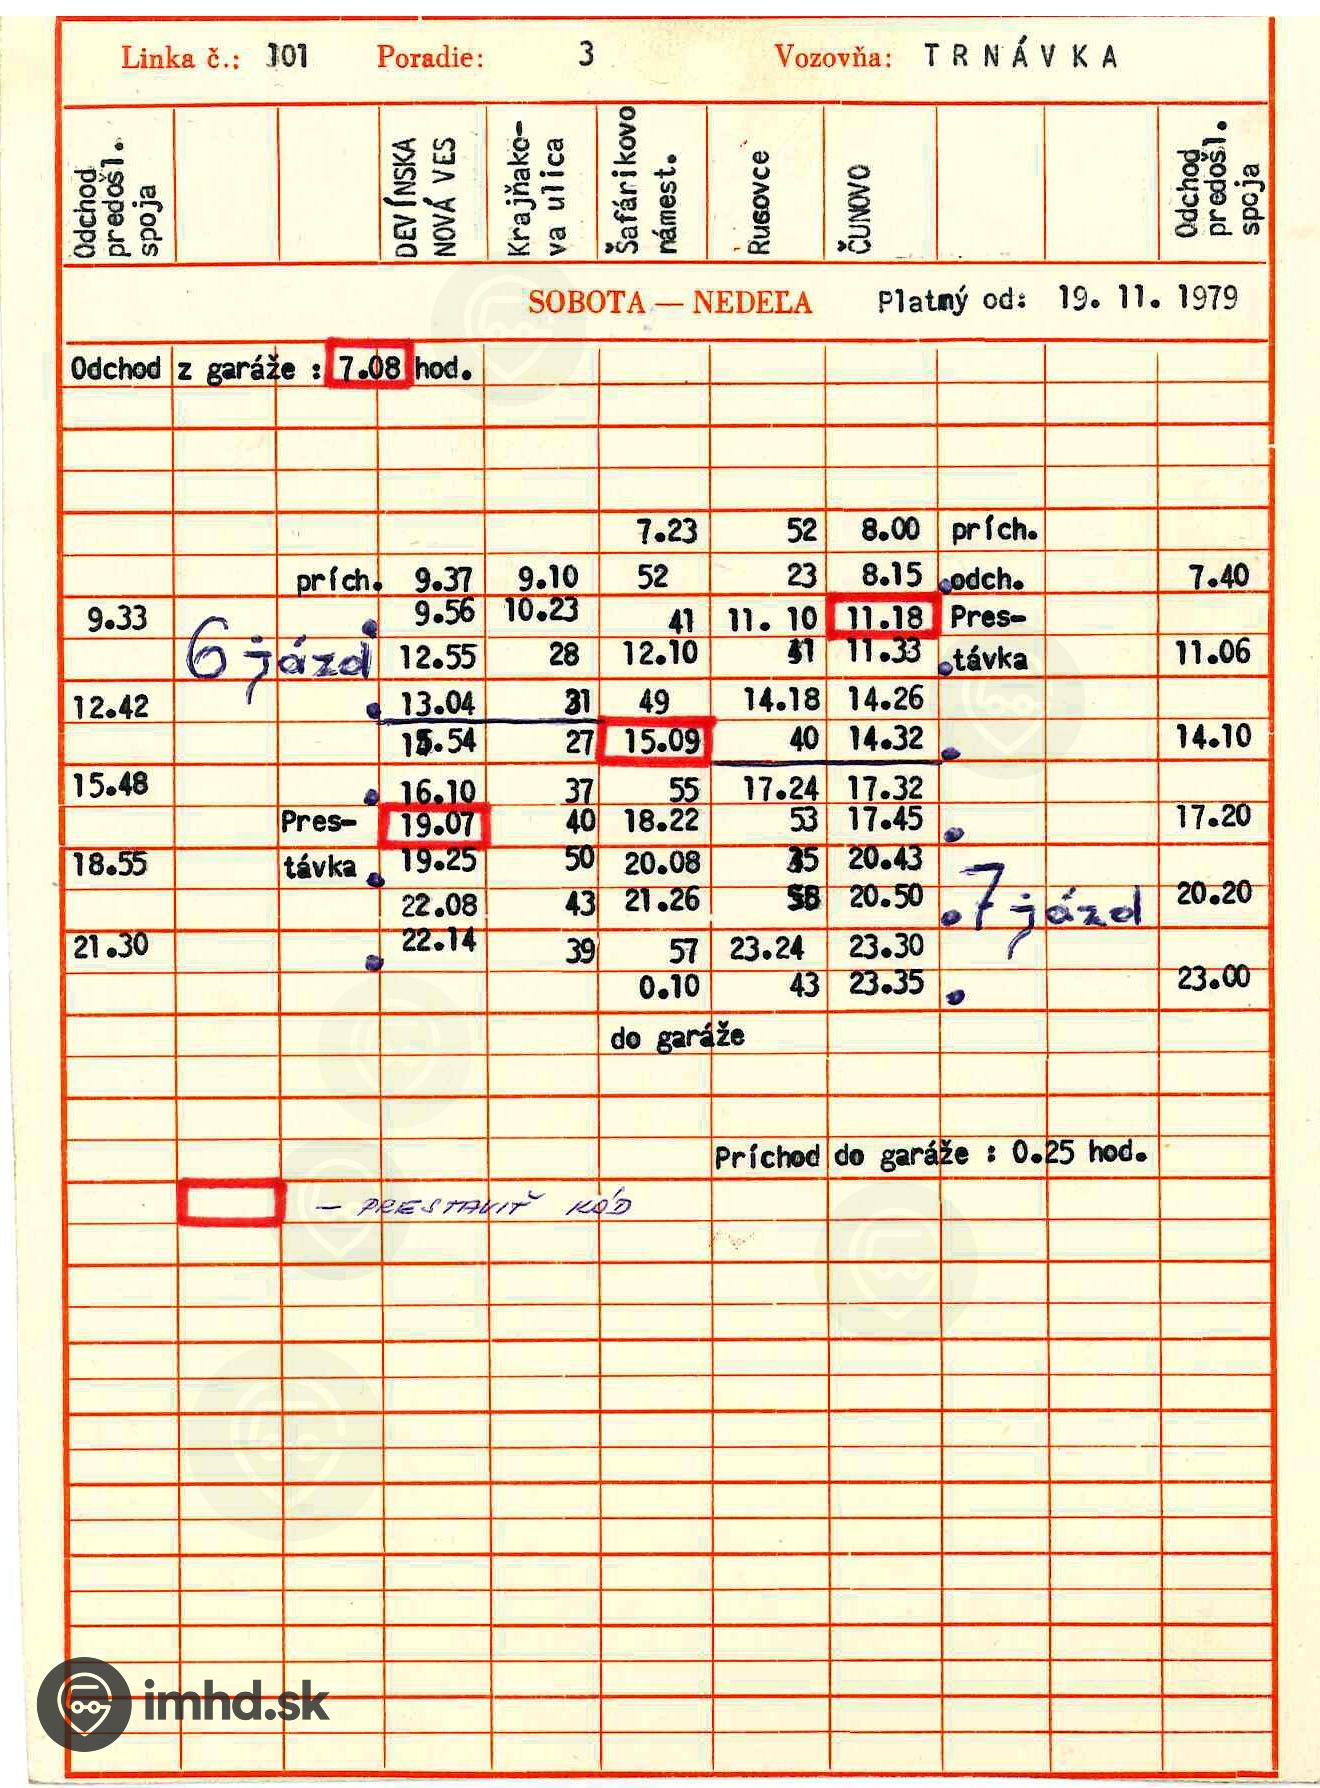 Linka č.: 101 Poradie: 3 Vozovňa: TRNÁVKA
Odchod predošl. spoja DEVÍNSKA NOVÁ VES Krajňako- va ulica Šafárikovo námest. Rusovce ČUNOVO Odchod predošl. spoja
SOBOTA — NEDEĽA Platný od: 19. 11. 1979
Odchod z garáže : 7.08 hod.
7.23 52 8.00 prích.
prích. 9.37 9.10 52 23 8.15 odch. 7.40
9.33 9.56 10.23 41 11. 10 11.18 Pres-
6 jázd 12.55 28 12.10 41 11.33 távka 11.06
12.42 13.04 31 49 14.18 14.26
15.54 27 15.09 40 14.32 14.10
15.48 16.10 37 55 17.24 17.32
Pres- 19.07 40 18.22 53 17.45 17.20
18.55 távka 19.25 50 20.08 35 20.43
22.08 43 21.26 58 20.50 7 jázd 20.20
21.30 22.14 39 57 23.24 23.30
0.10 43 23.35 23.00
do garáže
Príchod do garáže : 0.25 hod.
— PRESTAVIŤ KÓD
imhd.sk